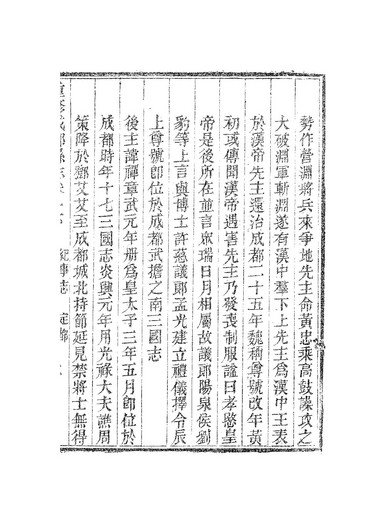 勢作營淵將兵來爭地先主命黃忠乘高鼓譟攻之
大破淵軍斬淵遂有漢中羣下上先主為漢中王表
於漢帝先主還治成都二十五年魏稱尊號改年黃
初或傳聞漢帝遇害先主乃發喪制服諡曰孝愍皇
帝是後所在並言眾瑞日月相屬故議郎陽泉侯劉
豹等上言與博士許慈議郎孟光建立禮儀擇令辰
上尊號即位於成都武擔之南三國志
後主諱禪章武元年册為皇太子三年五月即位於
成都時年十七三國志炎興元年用光祿大夫譙周
策降於鄧艾艾至成都城北持節延見禁將士無得
重修成都縣志卷
紀事志